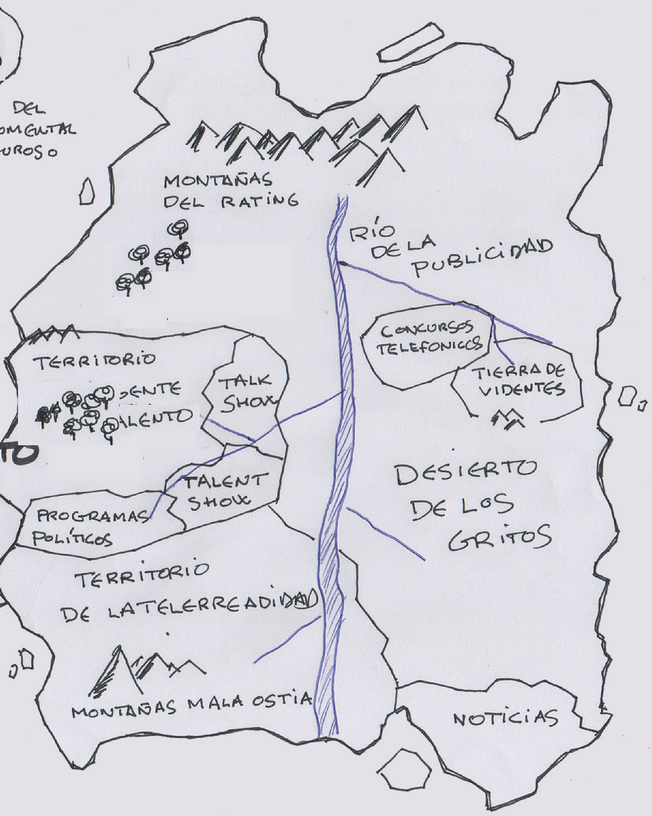 DEL
OMENTAL
UROSO
MONTAÑAS
DEL RATING
RÍO
DE LA
PUBLICIDAD
CONCURSOS
TELEFONICOS
TIERRA DE
VIDENTES
TERRITORIO
ENTE
ALENTO
TALK
SHOW
TO
TALENT
SHOW
PROGRAMAS
POLÍTICOS
DESIERTO
DE LOS
GRITOS
TERRITORIO
DE LA TELERREADIDAD
MONTAÑAS MALA OSTIA
NOTICIAS